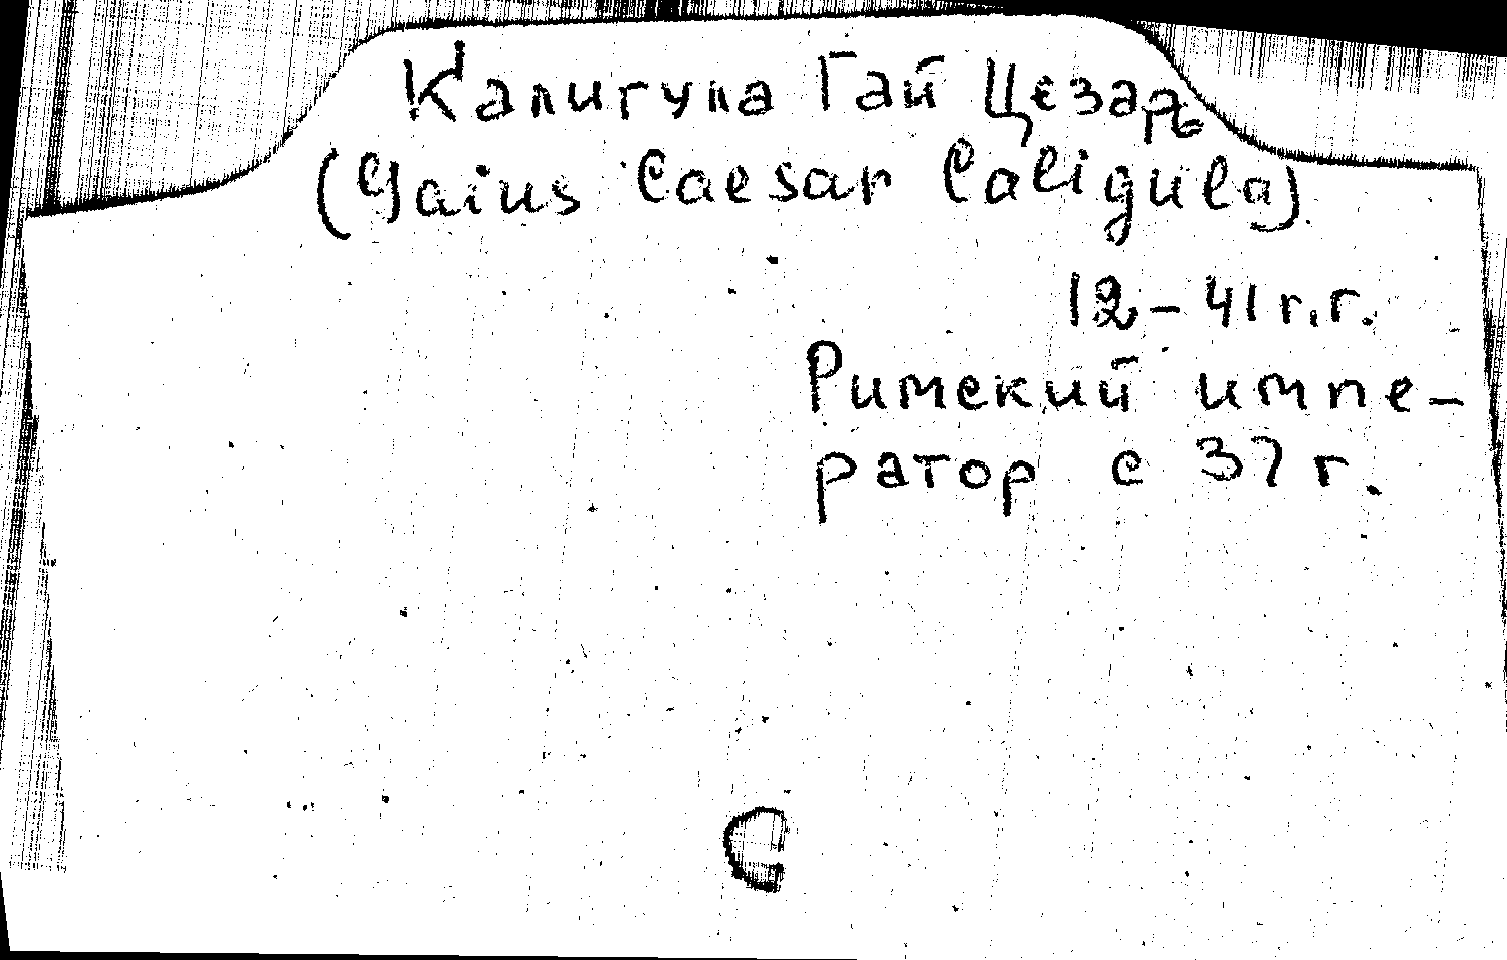 Калигула Гай Цезарь
(Gaius Caesar Caligula)
12 – 41 г.г.
Римский импе-
ратор с 37 г.